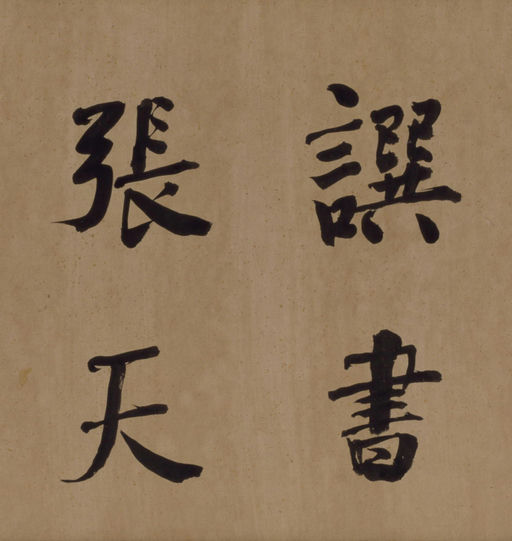 譔書
張天